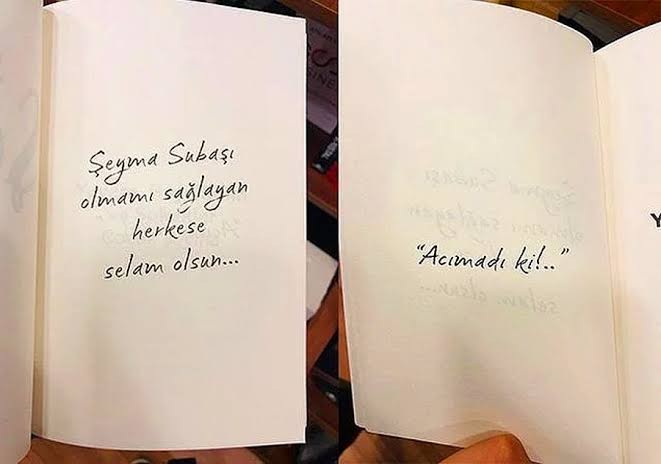 Şeyma Subaşı
olmamı sağlayan
herkese
selam olsun...
"Acımadı ki!.."
Y